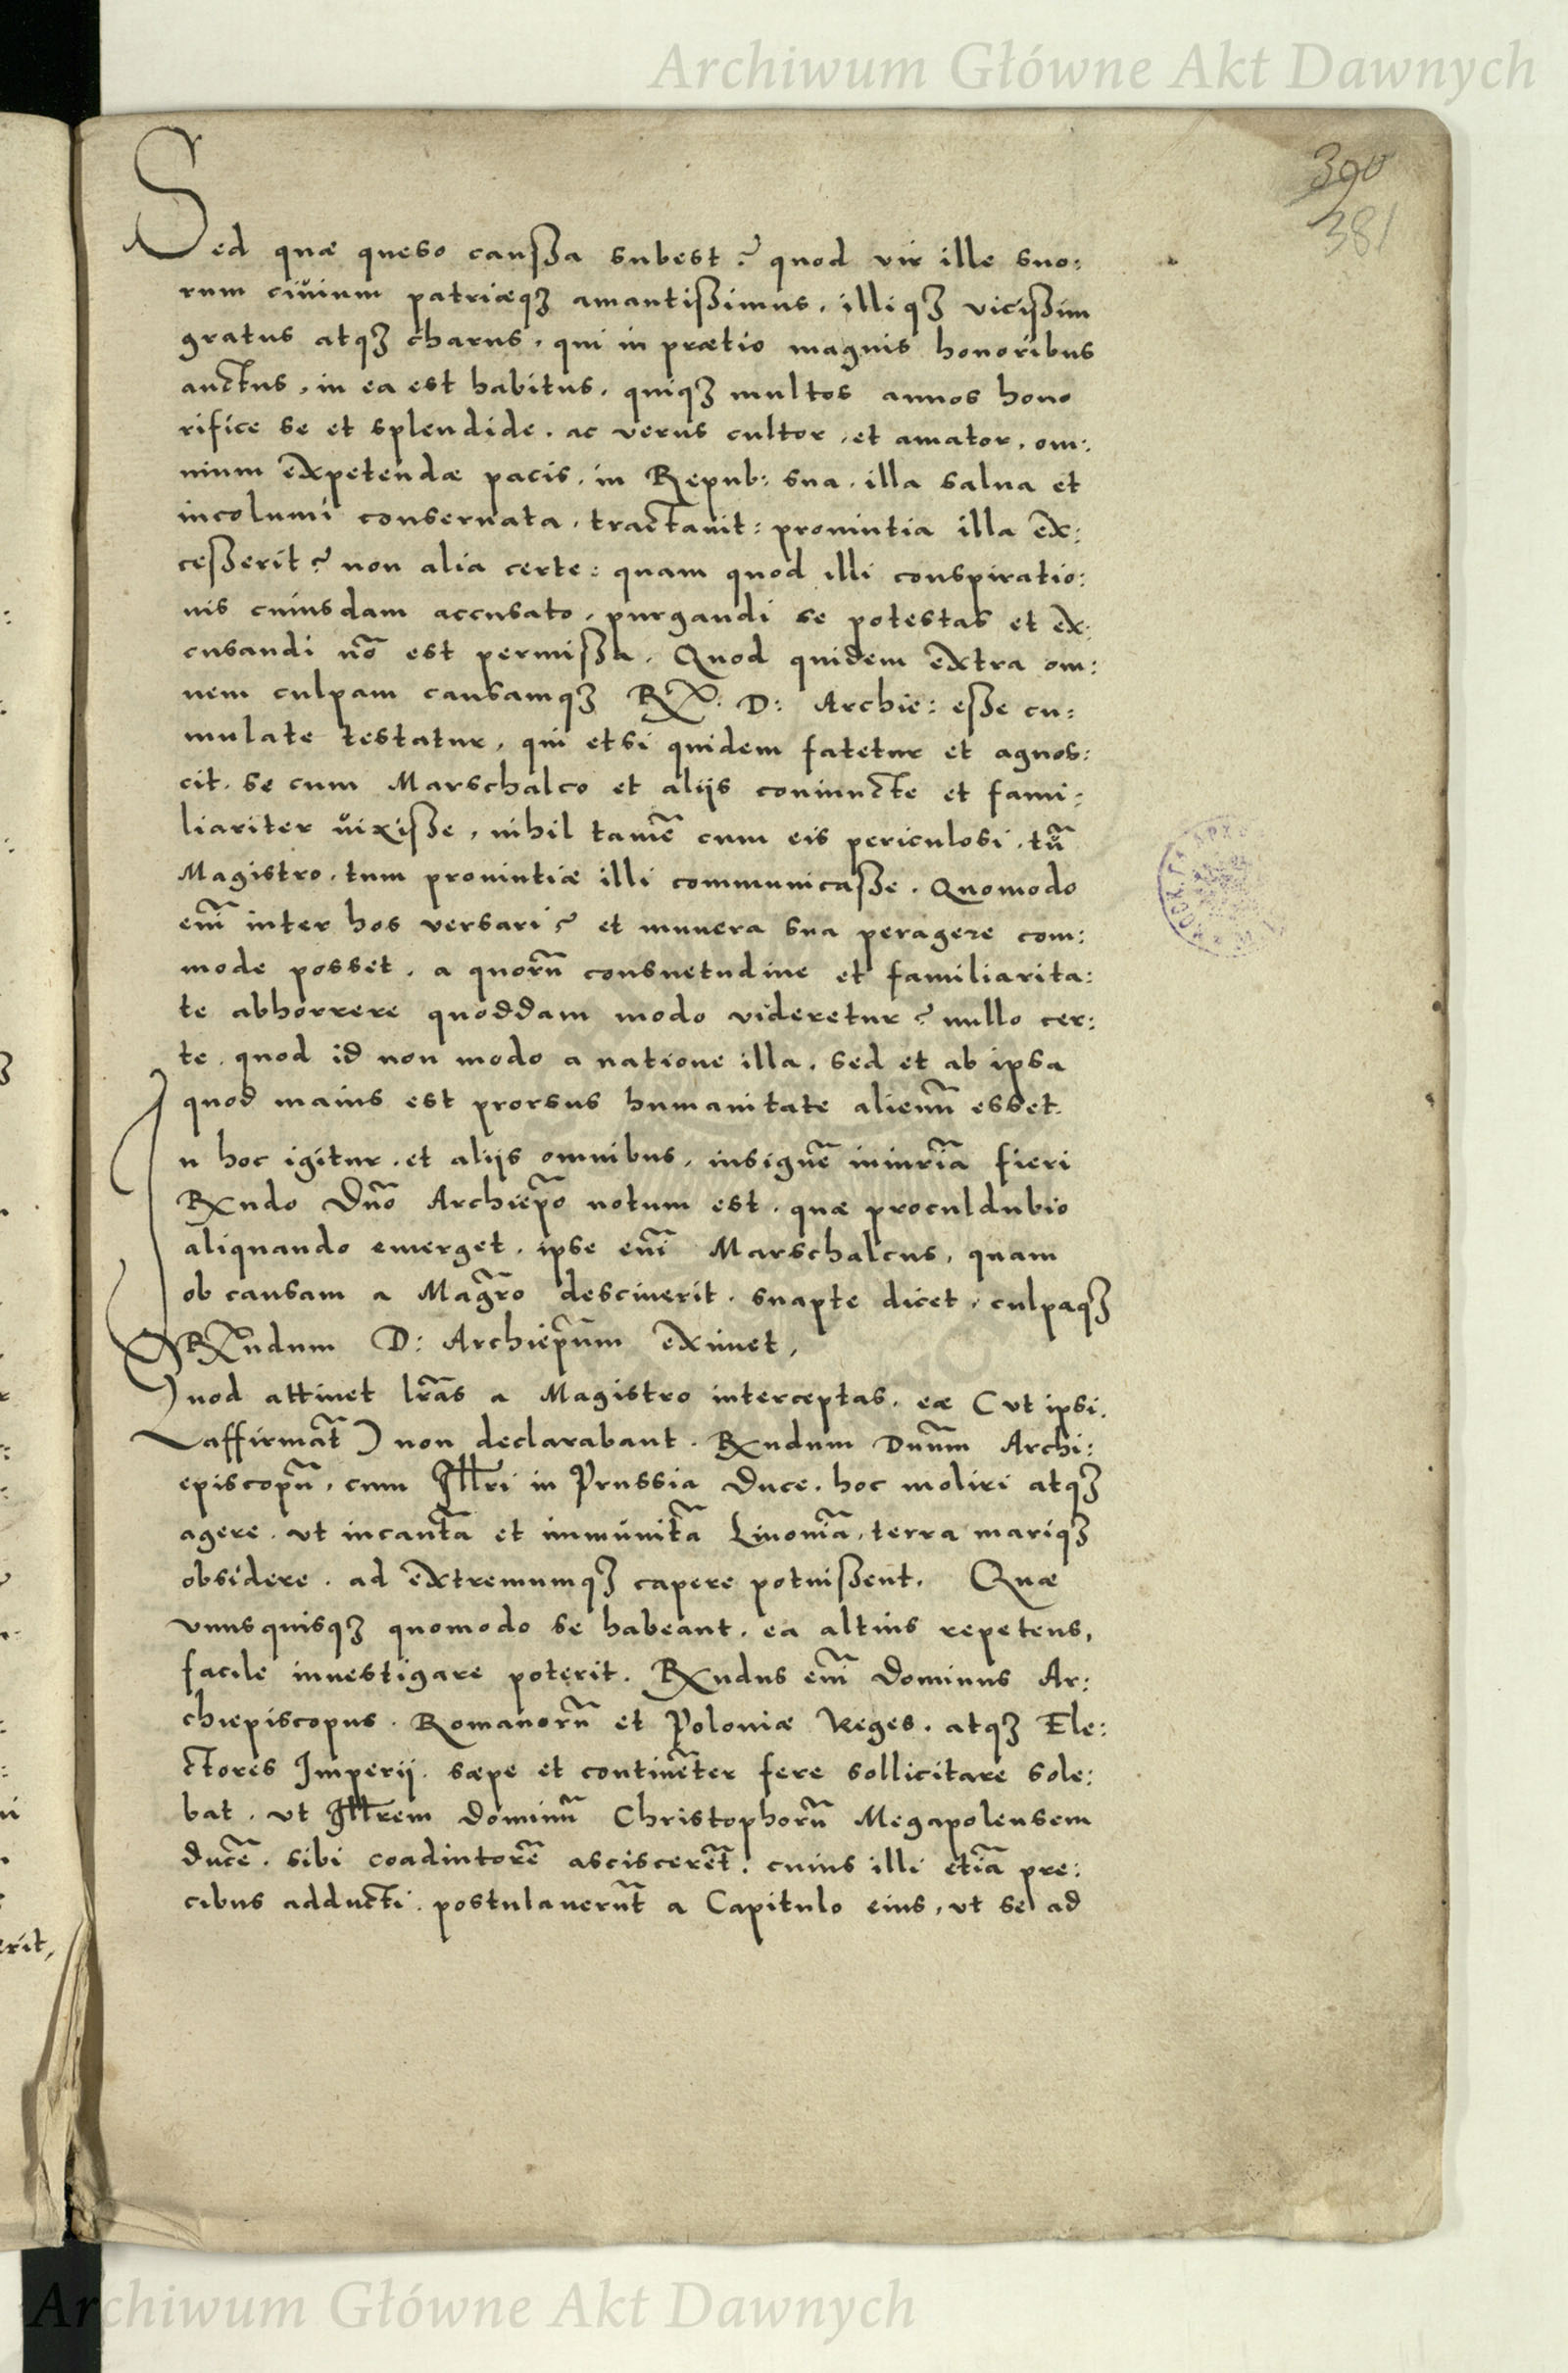 Archiwum Główne Akt Dawnych
390
381
Sed quæ queso caußa subest? quod vir ille suo:
rum civium patriæqȝ amantißimus, illiqȝ vicißim
gratus atqȝ charus, qui in prætio magnis honoribus
auctus, in ea est habitus, quiqȝ multos annos hono
rifice se et splendide, ac verus cultor, et amator, om:
nium expetendæ pacis, in Repub: sua, illa salua et
incolumi conseruata, tractauit: prouintia illa ex:
ceßerit? non alia certe: quam quod illi conspiratio:
nis cuiusdam accusato, purgandi se potestas et ex:
cusandi nõ est permißa. Quod quidem extra om:
nem culpam causamqȝ Rx̃: D: Archie: eße cu:
mulate testatur, qui etsi quidem fatetur et agnos:
cit, se cum Marschalco et alijs coniuncte et fami:
liariter vixiße, nihil tamẽ cum eis periculosi, tũ
Magistro, tum prouintiæ illi communicaße. Quomodo
em̃ inter hos versari? et munera sua peragere com:
mode posset, a quorũ consuetudine et familiarita:
te abhorrere quoddam modo videretur? nullo cer:
te, quod id non modo a natione illa, sed et ab ipsa
quod maius est prorsus humanitate alienũ esset.
In hoc igitur, et alijs omnibus, insignẽ iniuriã fieri
Rxndo Dño Archiepõ notum est, quæ proculdubio
aliquando emerget, ipse em̃ Marschalcus, quam
ob causam a Magrõ desciuerit, suapte dicet, culpaqȝ
Rxndum D: Archiepũm eximet,
Quod attinet lrãs a Magistro interceptas, eæ (vt ipsi
affirmãt) non declarabant, Rxndum Dnũm Archi:
episcopũ, cum Illri in Prussia Duce, hoc moliri atqȝ
agere, vt incautã et immunitã Liuoniã, terra mariqȝ
obsidere, ad extremumqȝ capere potuißent. Quæ
vnusquisqȝ quomodo se habeant, ea altius repetens,
facile inuestigare poterit. Rxndus em̃ Dominus Ar:
chiepiscopus, Romanorũ et Poloniæ Reges, atqȝ Ele:
ctores Imperij, sæpe et continẽter fere sollicitare sole:
bat, vt Illrem Dominũ Christophorũ Megapolensem
ducẽ, sibi coadiutorẽ asciscerẽt, cuius illi etiã pre:
cibus adducti, postulauerũt a Capitulo eius, vt se ad
erit,
Archiwum Główne Akt Dawnych